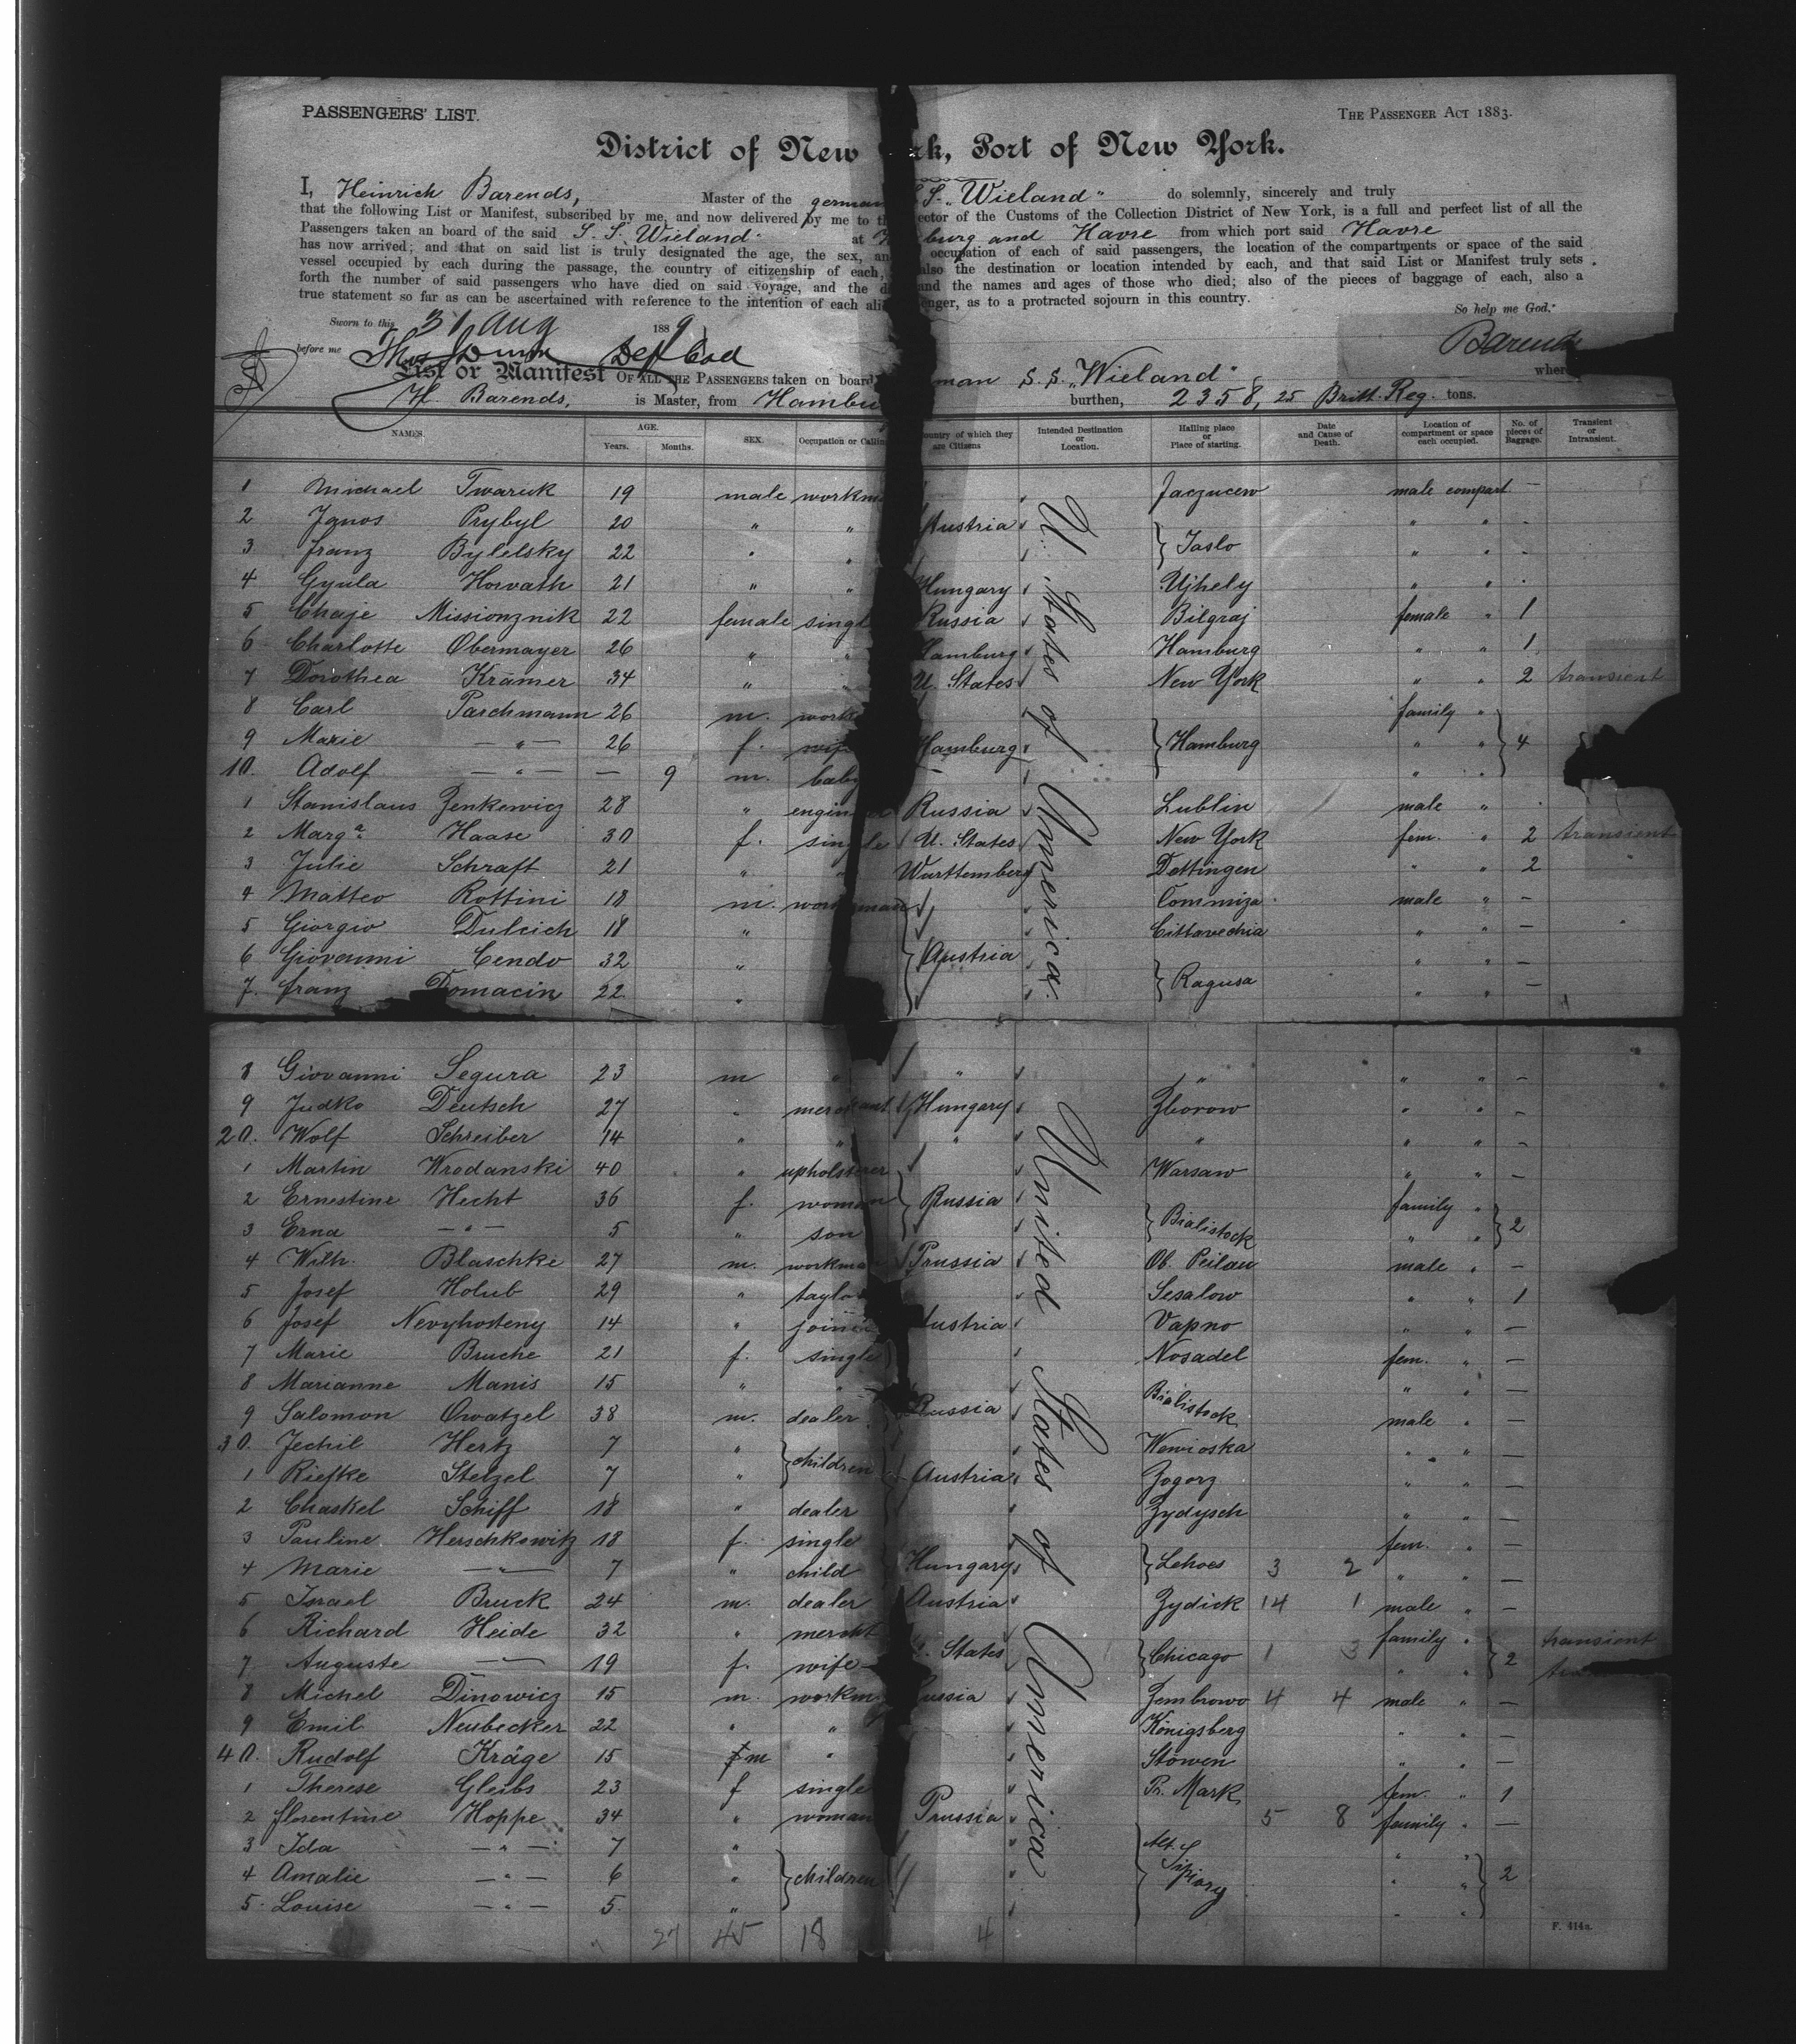 PASSENGERS' LIST.
THE PASSENGER ACT 1883.
District of New rk, Port of New York.
I, Heinrich Barends, Master of the german S. S. „Wieland" do solemnly, sincerely and truly
that the following List or Manifest, subscribed by me, and now delivered by me to th ector of the Customs of the Collection District of New York, is a full and perfect list of all the
Passengers taken an board of the said S. S. Wieland" at H burg and Havre from which port said Havre
has now arrived; and that on said list is truly designated the age, the sex, an occupation of each of said passengers, the location of the compartments or space of the said
vessel occupied by each during the passage, the country of citizenship of each, also the destination or location intended by each, and that said List or Manifest truly sets
forth the number of said passengers who have died on said voyage, and the d and the names and ages of those who died; also of the pieces of baggage of each, also a
true statement so far as can be ascertained with reference to the intention of each alie enger, as to a protracted sojourn in this country.
So help me God."
Sworn to this 31 Aug 1889
Barends
before me Thos Dunn Dep Col
where
List or Manifest OF ALL THE PASSENGERS taken on board man S. S. „Wieland"
H. Barends, is Master, from Hambu burthen, 2358,25 Britt. Reg. tons.
NAMES. AGE. Years. Months. SEX. Occupation or Callin ountry of which they are Citizens Intended Destination or Location. Hailing place or Place of starting. Date and Cause of Death. Location of compartment or space each occupied. No. of pieces of Baggage. Transient or Intransient.
U. States of America.
1 Michael Twaruk 19 male workm Jaczucew male compart —
2 Janos Prybyl 20 " " Austria } Jaslo " " -
3 Franz Bylelsky 22 " " " " -
4 Gyula Horvath 21 " " Hungary Ujhely " " -
5 Chaje Missionznik 22 female singl Russia Bilgraj female " 1
6 Charlotte Obermayer 26 " " Hamburg Hamburg " " 1
7 Dorothea Krämer 34 " " U. States New York " " 2 transient
8 Carl Parchmann 26 m. work family "
9 Marie — " — 26 f. wife Hamburg } Hamburg " " } 4
10. Adolf — " — — 9 m. baby " "
1 Stanislaus Zenkewicz 28 " engineer Russia Lublin male " -
2 Marga Haase 30 f. single U. States New York fem. " 2 transient
3 Julie Schraft 21 " " Württemberg Dettingen " " 2 "
4 Matteo Rottini 18 m. workman Commiza male " —
5 Giorgio Dulcich 18 " Cittavechia " " —
6 Giovanni Cendo 32 " } Austria } Ragusa " " —
7. Franz Domacin 22 " " " —
United States of America
8 Giovanni Segura 23 m " " " " " —
9 Judko Deutsch 27 " merchant Hungary Zborow " " —
20. Wolf Schreiber 14 " " " " " " —
1 Martin Wrodanski 40 " upholsterer Warsaw " " —
2 Ernestine Hecht 36 f. woman } Russia } Bialistock family " } 2
3 Erna — " — 5 " son " "
4 Wilh. Blaschke 27 m. workman Prussia Ob. Peilau male " —
5 Josef Holub 29 " taylor Sesalow " " 1
6 Josef Nevyhosteny 14 " joiner ustria Vapno " " —
7 Marie Bruche 21 f. single Nosadel fem. " —
8 Marianne Manis 15 " " Bialistock " " —
9 Salomon Owatzel 38 m. dealer Russia male " —
30. Jechil Hertz 7 " } children Wewioska " " —
1 Riefke Stelzel 7 " Austria Zogorz " " —
2 Chaskel Schiff 18 " dealer Zydysch " " —
3 Pauline Herschkowitz 18 f. single fem. " —
4 Marie — " — 7 " child Hungary } Lehoes 3 2 " " —
5 Israel Bruck 24 m. dealer Austria Zydick 14 1 male " —
6 Richard Heide 32 " mercht . States } Chicago family " } 2 transient
7 Auguste — " — 19 f. wife 1 3 " "
8 Michel Dinowicz 15 m. workm ussia Zembrowo 4 4 male " —
9 Emil Neubecker 22 " " Königsberg " " —
40. Rudolf Kräge 15 m " Stöwen " " —
1 Therese Gleibs 23 f single Pr. Mark fem. " 1
2 Florentine Hoppe 34 " woman Prussia 5 8 family " —
3 Ida — " — 7 " " "
4 Amalie — " — 6 " } children " " } 2
5. Louise — " — 5. " " "
27 45 18 4
F. 414a.